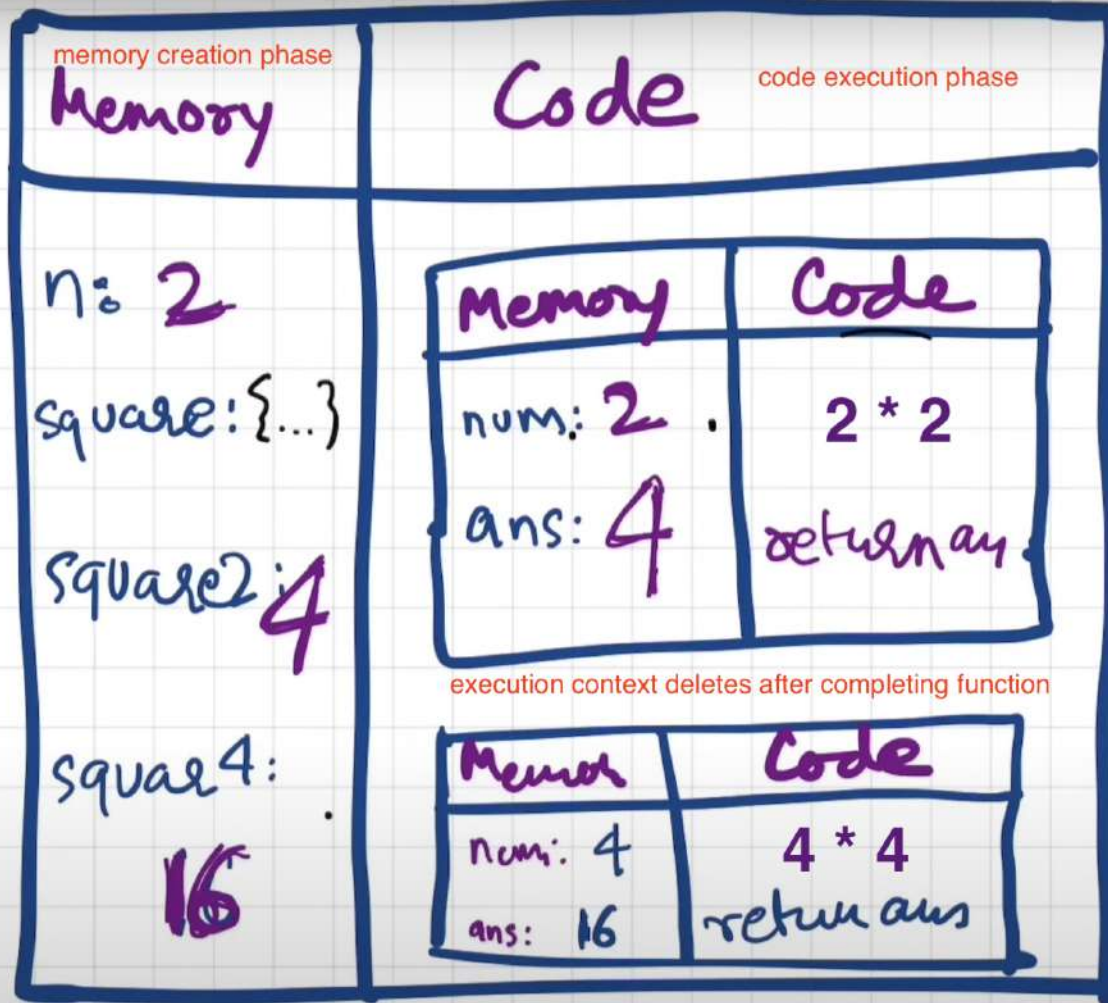 memory creation phase
Memory
Code
code execution phase
n: 2
square: {...}
square2: 4
squar4:
16
Memory
Code
num: 2
2 * 2
ans: 4
return an
execution context deletes after completing function
Memor
Code
num: 4
4 * 4
ans: 16
return ans